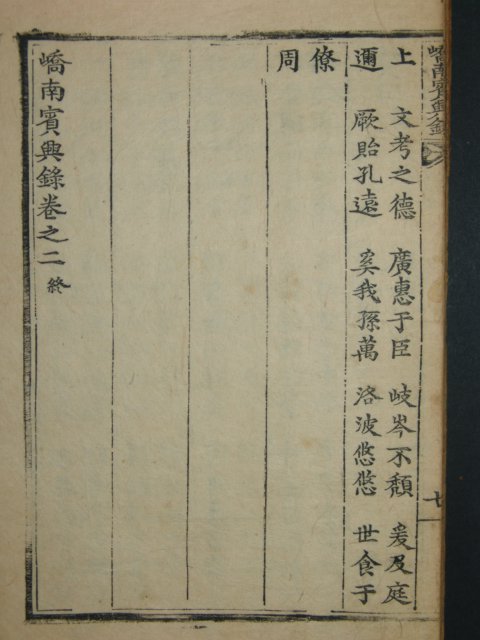 嶠南賓興錄
七
上 文考之德 廣惠于臣 岐岑不頹 爰及庭
邇 厥貽孔遠 奚我孫萬 洛波悠悠 世食于
僚
周
嶠南賓興錄卷之二 終